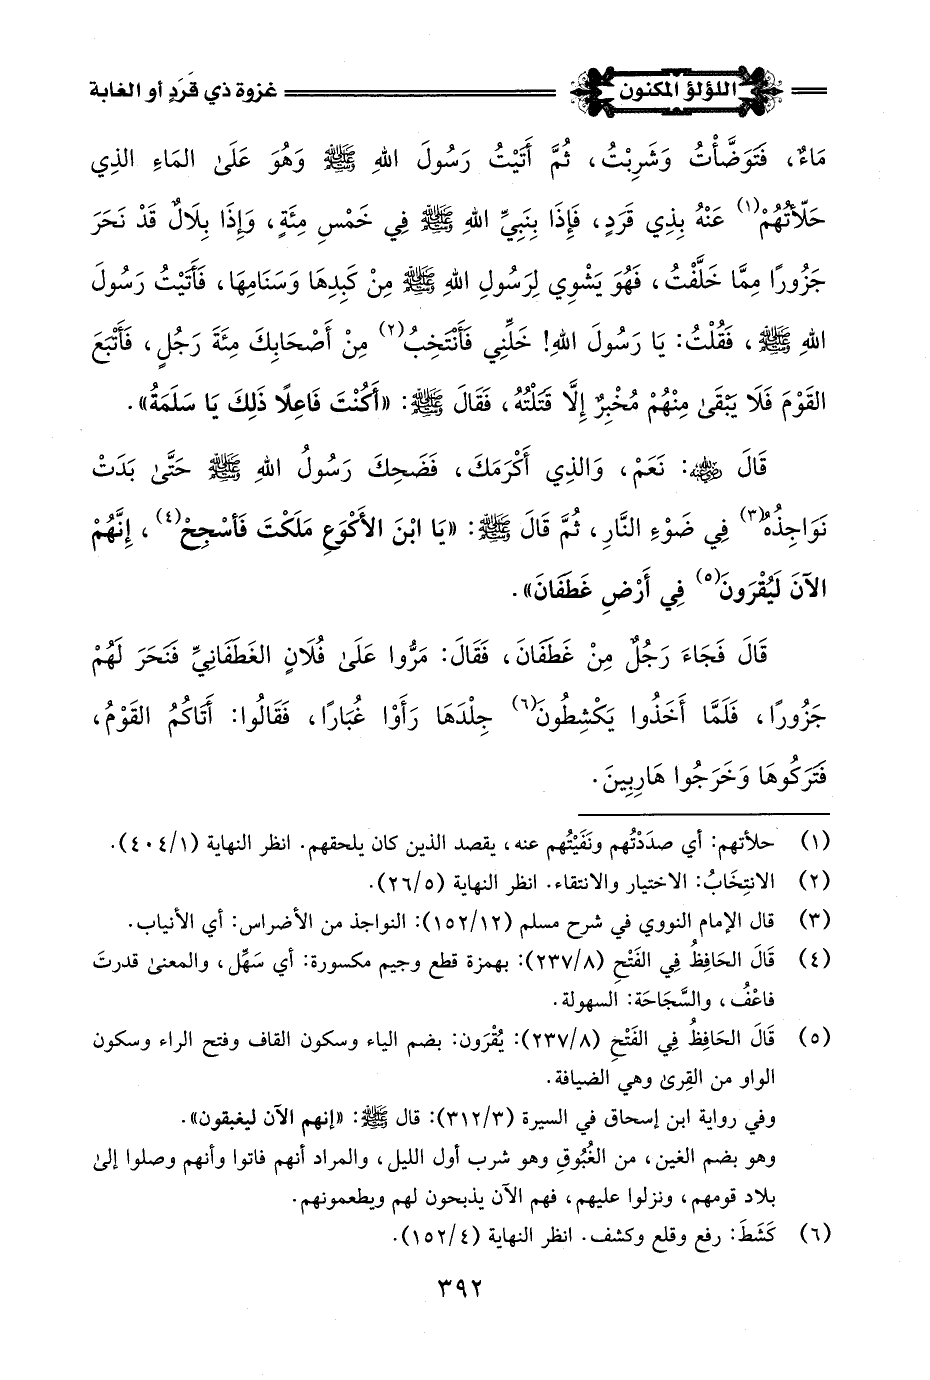 اللؤلؤ المكنون
غزوة ذي قَرَدٍ أو الغابة
مَاءٌ، فَتَوَضَّأْتُ وَشَرِبْتُ، ثُمَّ أَتَيْتُ رَسُولَ اللهِ ﷺ وَهُوَ عَلَىٰ المَاءِ الذِي
حَلَّأتُهُمْ(١) عَنْهُ بِذِي قَرَدٍ، فَإِذَا بِنَبِيِّ اللهِ ﷺ فِي خَمْسِ مِئَةٍ، وَإِذَا بِلَالٌ قَدْ نَحَرَ
جَزُورًا مِمَّا خَلَّفْتُ، فَهُوَ يَشْوِي لِرَسُولِ اللهِ ﷺ مِنْ كَبِدِهَا وَسَنَامِهَا، فَأَتَيْتُ رَسُولَ
اللهِ ﷺ، فَقُلْتُ: يَا رَسُولَ اللهِ! خَلِّنِي فَأَنْتَخِبُ(٢) مِنْ أَصْحَابِكَ مِئَةَ رَجُلٍ، فَأَتْبَعَ
القَوْمَ فَلَا يَبْقَىٰ مِنْهُمْ مُخْبِرٌ إِلَّا قَتَلْتُهُ، فَقَالَ ﷺ: «أَكُنْتَ فَاعِلًا ذَلِكَ يَا سَلَمَةُ».
قَالَ رضي الله عنه: نَعَمْ، وَالذِي أَكْرَمَكَ، فَضَحِكَ رَسُولُ اللهِ ﷺ حَتَّىٰ بَدَتْ
نَوَاجِذُهُ(٣) فِي ضَوْءِ النَّارِ، ثُمَّ قَالَ ﷺ: «يَا ابْنَ الأَكْوَعِ مَلَكْتَ فَأَسْجِحْ(٤)، إِنَّهُمْ
الآنَ لَيُقْرَونَ(٥) فِي أَرْضِ غَطَفَانَ».
قَالَ فَجَاءَ رَجُلٌ مِنْ غَطَفَانَ، فَقَالَ: مَرُّوا عَلَىٰ فُلَانٍ الغَطَفَانِيِّ فَنَحَرَ لَهُمْ
جَزُورًا، فَلَمَّا أَخَذُوا يَكْشِطُونَ(٦) جِلْدَهَا رَأَوْا غُبَارًا، فَقَالُوا: أَتَاكُمُ القَوْمُ،
فَتَرَكُوهَا وَخَرَجُوا هَارِبِينَ.
(١) حلأتهم: أي صدَدْتُهم ونَفَيْتُهم عنه، يقصد الذين كان يلحقهم. انظر النهاية (١/٤٠٤).
(٢) الانتِخَابُ: الاختيار والانتقاء. انظر النهاية (٥/٢٦).
(٣) قال الإمام النووي في شرح مسلم (١٢/١٥٢): النواجذ من الأضراس: أي الأنياب.
(٤) قَالَ الحَافِظُ فِي الفَتْحِ (٨/٢٣٧): بهمزة قطع وجيم مكسورة: أي سَهِّل، والمعنىٰ قدرتَ
فاعْفُ، والسَّجَاحَة: السهولة.
(٥) قَالَ الحَافِظُ فِي الفَتْحِ (٨/٢٣٧): يُقْرَون: بضم الياء وسكون القاف وفتح الراء وسكون
الواو من القِرىٰ وهي الضيافة.
وفي رواية ابن إسحاق في السيرة (٣/٣١٢): قال ﷺ: «إنهم الآن ليغبقون».
وهو بضم الغين، من الغُبُوقِ وهو شرب أول الليل، والمراد أنهم فاتوا وأنهم وصلوا إلىٰ
بلاد قومهم، ونزلوا عليهم، فهم الآن يذبحون لهم ويطعمونهم.
(٦) كَشَطَ: رفع وقلع وكشف. انظر النهاية (٤/١٥٢).
٣٩٢